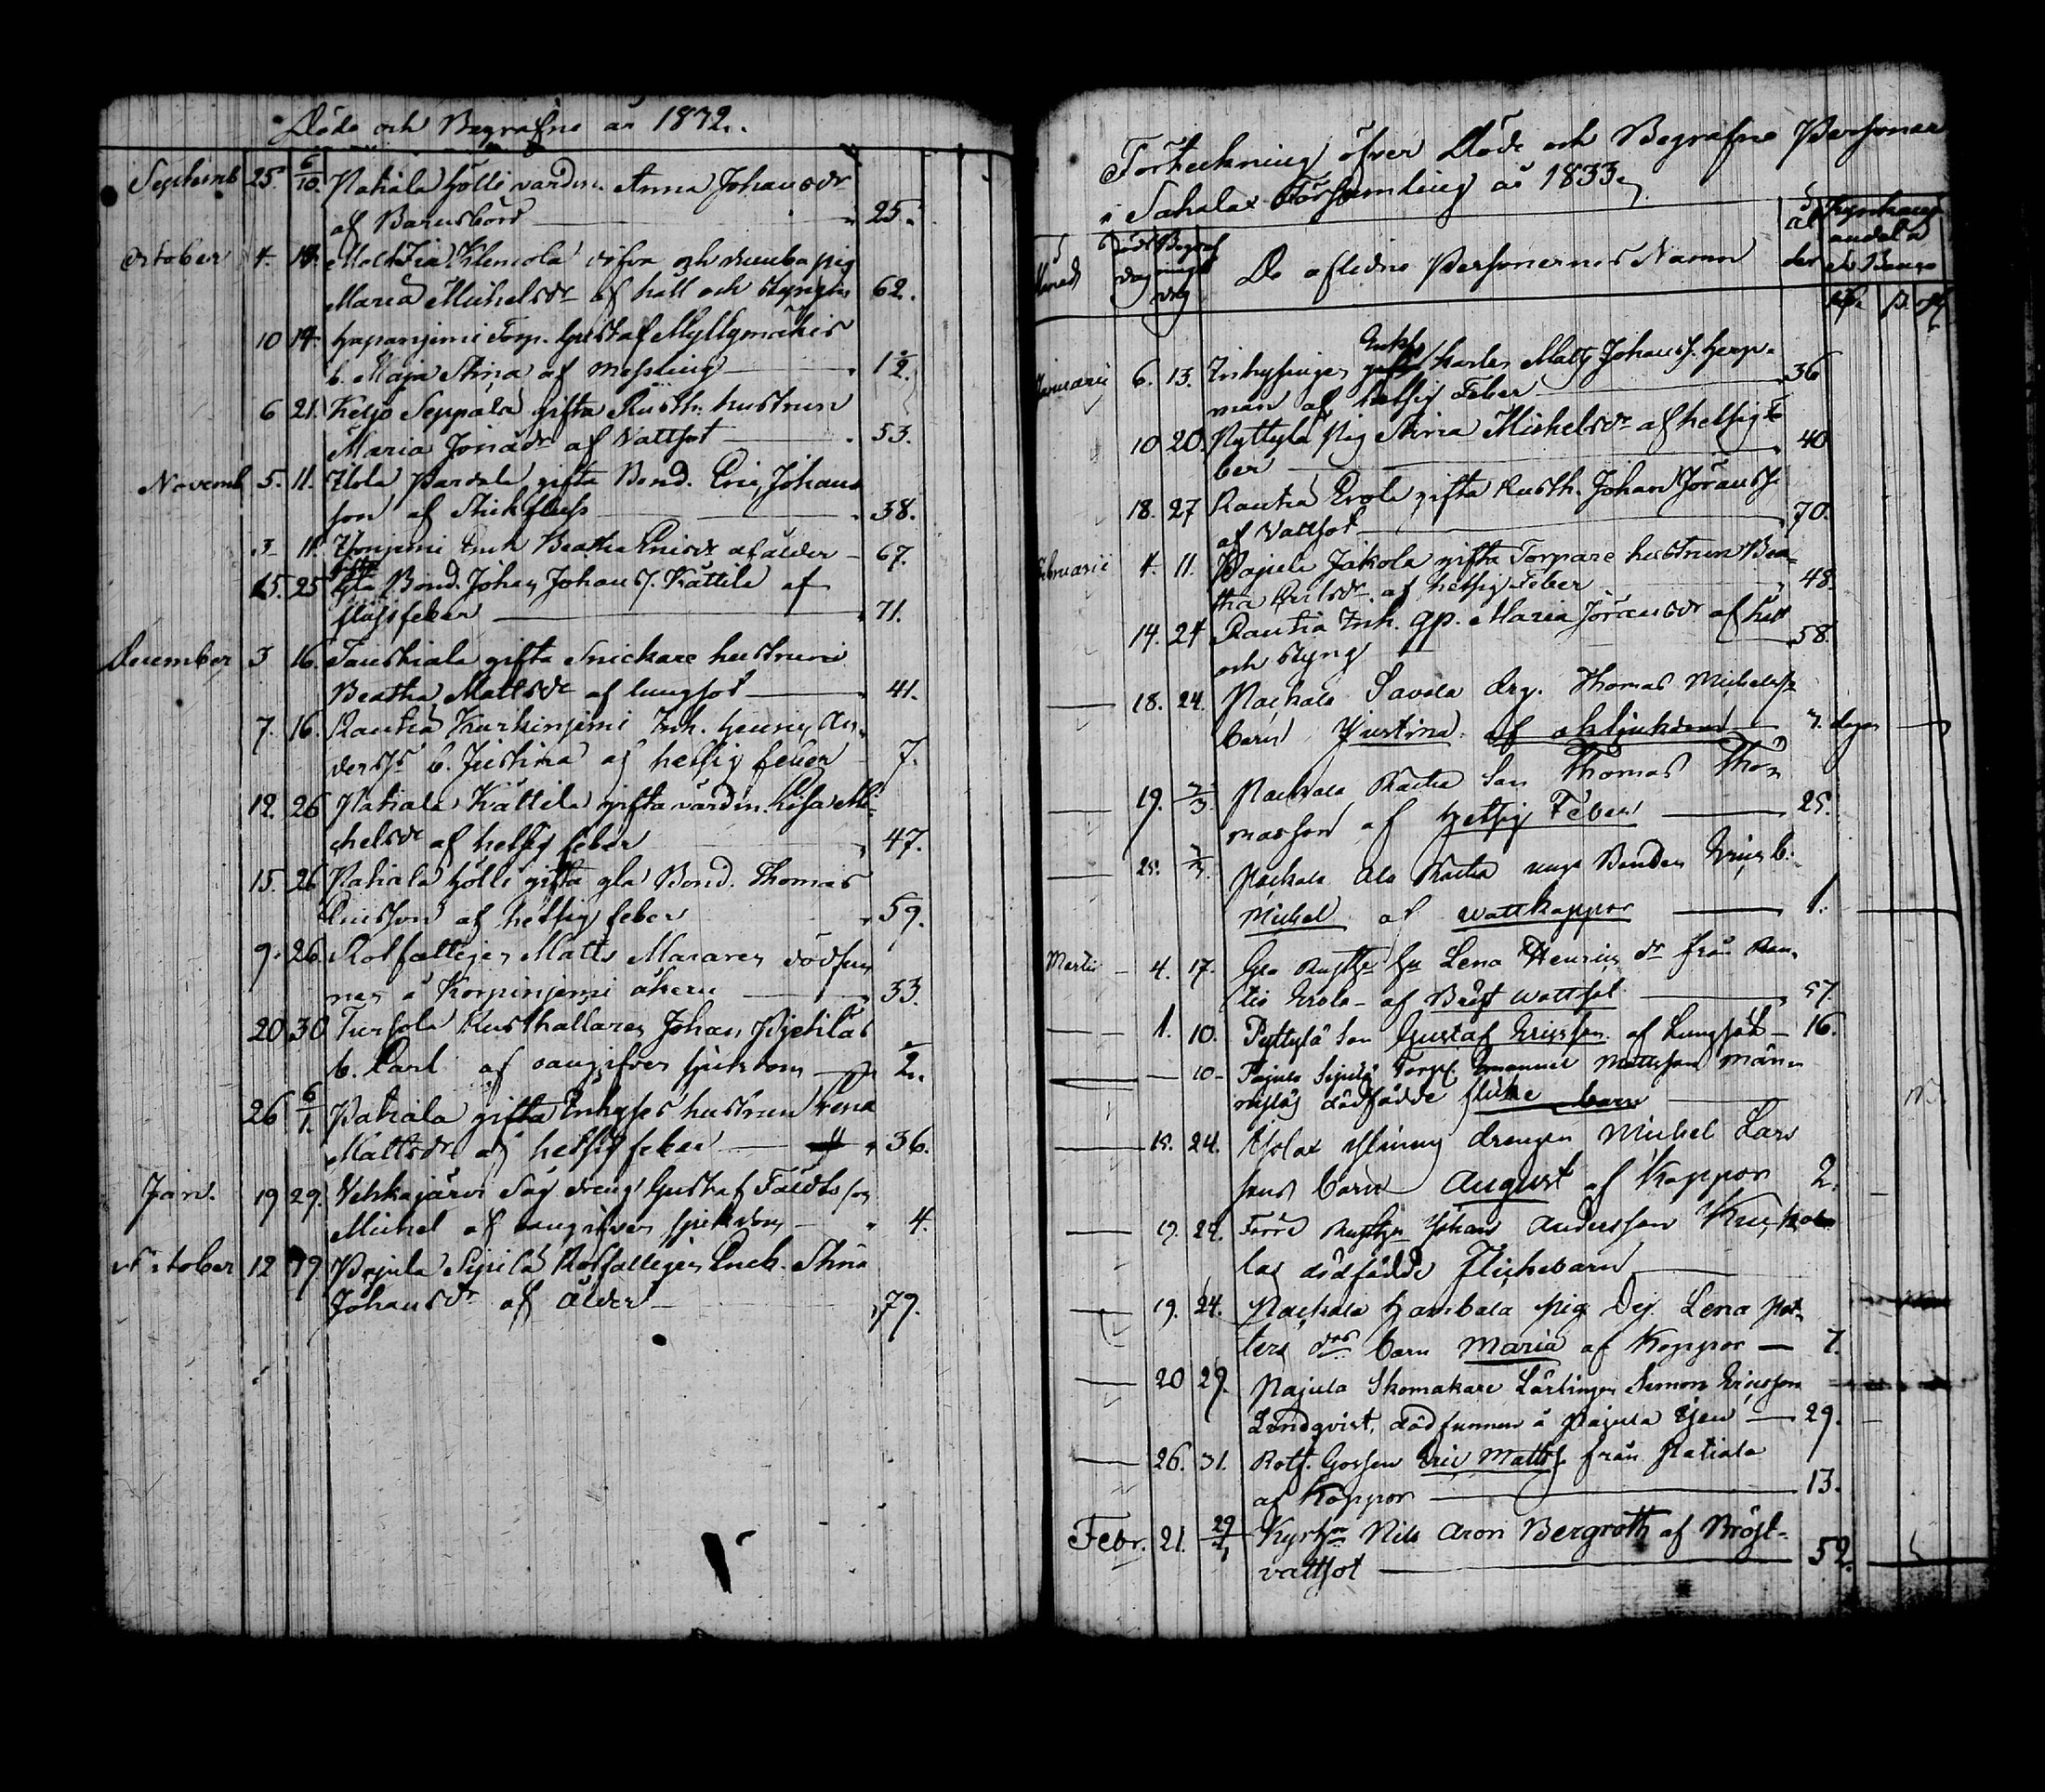 Döde och Begrafne år 1832.
Septemb 25. 6/10. Pakiala Hölli värdin. Anna Johansdr
af Barnsbörd 25.
October 4. 14. Klemola döfva och dumba pig
Maria Michelsdr af håll och styng 62.
10 14 Haparnjemi Torp. Gustaf Myllymäkis
b. Maja Stina af Messling 1 1/2.
6 21. Keljo Seppälä gifta Rusth. hustrun
Maria Jonädr af Vattsot 53.
Novemb 5. 11. Isola Pardala gifta Bond. Eric Johans
son af Stickfluss 38.
3 11 Enk. Beatha Ericsdr af ålder 67.
15. 25 gifta gla Bond. Johan Johanss. Kättilä af
flussfeber 71.
December 3 16. Taustiala gifta Snickare hustrun
Beatha Mattsdr af lungsot 41.
7. 16. Rautia Kurkinjemi Inh. Henric An-
derss. b. Justina af hetsig feber 7.
12. 26 Pakiala Kättilä gifta värdin. Lisa Mi-
chelsdr af hetsig feber 47.
15. 26 Pakiala Hölli gifta gla Bond. Thomas
Ericsson af hetsig feber 59.
9. 26. Rotfattigen Matts Mararen död fun
nen å Korpinjemi åkern 33.
20 30 Tursola Rusthållaren Johan Pijetiläs
b. Carl af oangifven sjukdom 1/2.
26 6/1. Pakiala gifta Inhyses hustrun Lena
Mattsdr af hetsig feber 36.
Jan. 19 29. Vehkajärvi Såg dreng Gustaf Fäldts son
Michel af oangifven sjukdom 4.
October 12 79 Pajula Sipilä Rotfattigen Enk. Stina
Johansdr af Ålder 79.
Förteckning öfver Döde och Begrafne Personer
i Sahalax Församling år 1833.
Månad Döds dag Begraf nings dag De aflidne Personernes Namn Ål der
Januarii 6. 13. Inhysingen Enkl. Karlen Matts Johanss. Herp-
man af hetsig Feber 36
10 20. Pyttylä Pig Stina Michelsdr af hetsig Fe
ber 40
18. 27 Rautia Erola gifta Rusth. Johan Jöranss.
af Vattsot 70.
Februarii 4. 11. Pajula Jakola gifta Torpare hustrun Bea-
tha Carlsdr. af hetsig Feber 48.
14. 24 Rautia Inh. gp. Maria Jöransdr af håll
och styng 58.
18. 24. Pakkala Savola drg. Thomas Michelss.
barn Justina af okänd sjukdom 7. dagar
19. 2/3 Pakkala Rautia Son Thomas Tho-
masson af Hetsig Feber 25.
25. Pakkala Ala Rautia unge Bonden Erics b.
Michel af wattkoppor 1.
Martii 4. 17. Gla Rusth. hu Lena Henrics dr från Rau-
tio Erola af Bröst wattsot 57
1. 10. Pyttylä Son Gustaf Ericsson af Lungsot 16.
10 Pajula Sipilä Torp. Emanuel Mattsson Männ
dödfödde flicke barn
15. 24. Isolax drengen Michel Lars
sons barn August af Koppor 2.
19. 24. Förre Rusth. Johan Andersson
las dödfödde Flickebarn
19. 24. Pakkala Hambala pig Dej. Lena Pet-
ters drs barn Maria af Koppor 7.
20 29. Pajula Skomakare Lärlingen Simon Ericsson
Lindqvist, död funnen å Pajula Ejen 29.
26. 31. Rotf. Gossen Eric Matts. från Pakiala
af Koppor 13.
Febr. 21. 29/ Kyrkn Nils Aron Bergroth af Bröst-
vattsot 52.